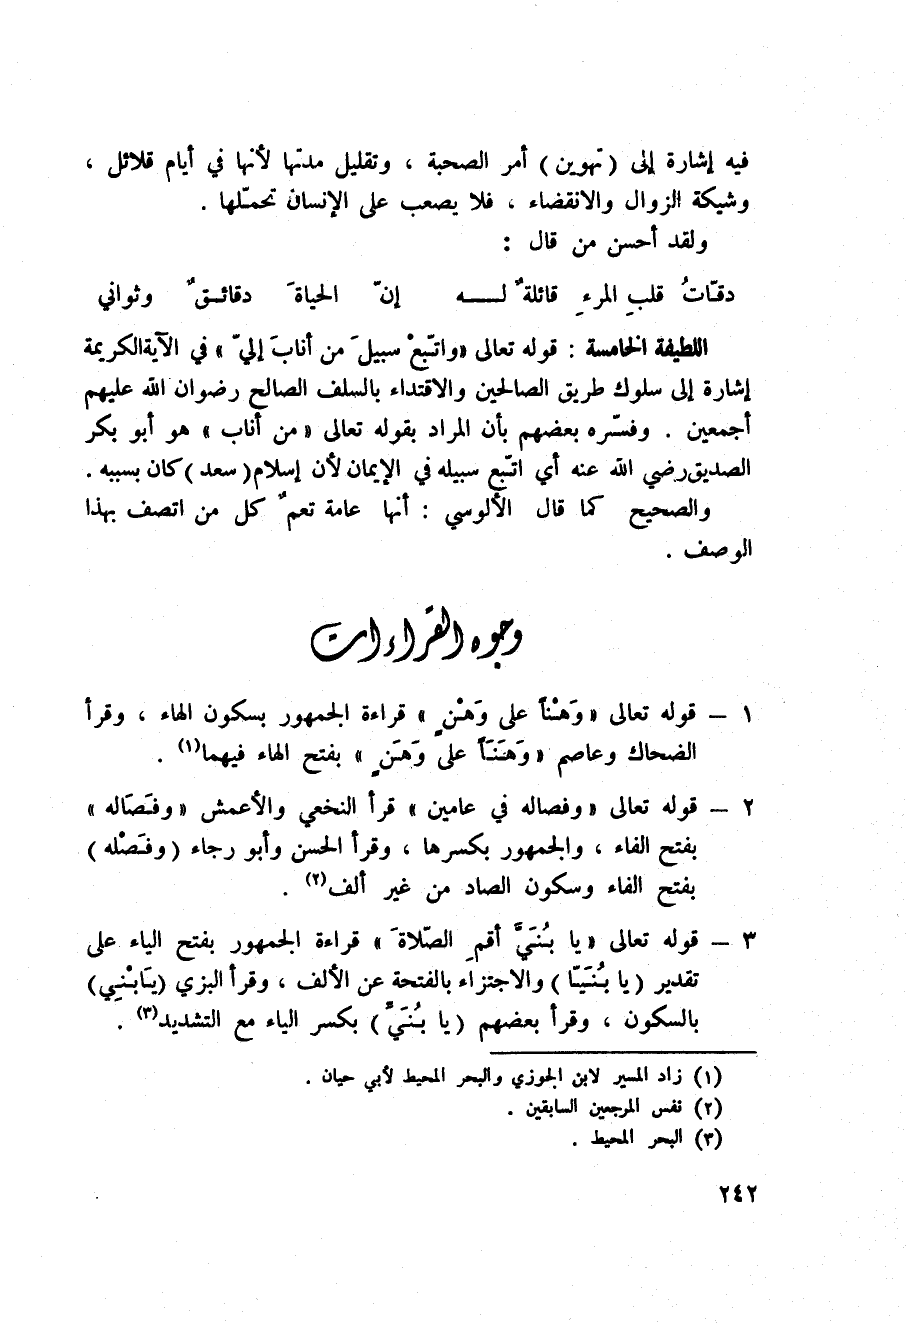 فيه إشارة إلى ( تهوين ) أمر الصحبة ، وتقليل مدتها لأنها في أيام قلائل ،
وشيكة الزوال والانقضاء ، فلا يصعب على الإنسان تحمّلها .
ولقد أحسن من قال :
دقّاتُ قلبِ المرءِ قائلةٌ لـــه إنّ الحياةَ دقائـقٌ وثواني
اللطيفة الخامسة : قوله تعالى «واتّبعْ سبيلَ من أنابَ إليّ » في الآية الكريمة
إشارة إلى سلوك طريق الصالحين والاقتداء بالسلف الصالح رضوان الله عليهم
أجمعين . وفسّره بعضهم بأن المراد بقوله تعالى « من أناب » هو أبو بكر
الصديق رضي الله عنه أي اتّبع سبيله في الإيمان لأن إسلام ( سعد ) كان بسببه .
والصحيح كما قال الألوسي : أنها عامة تعمٌ كل من اتصف بهذا
الوصف .
وجوه القراءات
١ – قوله تعالى « وَهْناً على وَهْنٍ » قراءة الجمهور بسكون الهاء ، وقرأ
الضحاك وعاصم « وَهَنَاً على وَهَنٍ » بفتح الهاء فيهما(١) .
٢ – قوله تعالى «وفصاله في عامين » قرأ النخعي والأعمش « وفَصَاله »
بفتح الفاء ، والجمهور بكسرها ، وقرأ الحسن وأبو رجاء ( وفَصْله )
بفتح الفاء وسكون الصاد من غير ألف(٢) .
٣ – قوله تعالى « يا بُنَيَّ أقمِ الصّلاةَ » قراءة الجمهور بفتح الياء على
تقدير ( يا بُنَيّا ) والاجتزاء بالفتحة عن الألف ، وقرأ البزي (يَابْنِي)
بالسكون ، وقرأ بعضهم ( يا بُنَيِّ ) بكسر الياء مع التشديد(٣) .
(١) زاد المسير لابن الجوزي والبحر المحيط لأبي حيان .
(٢) نفس المرجعين السابقين .
(٣) البحر المحيط .
٢٤٢